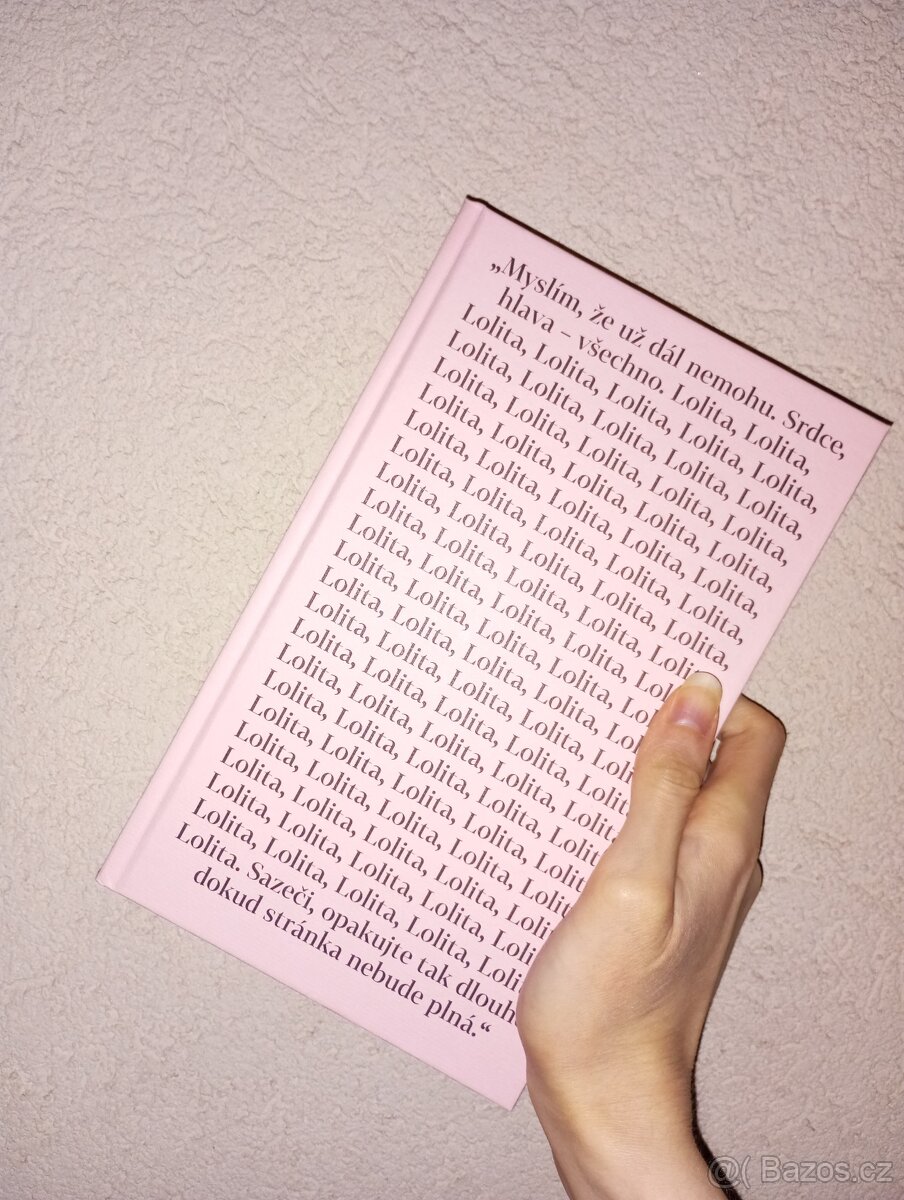 „Myslím, že už dál nemohu. Srdce,
hlava – všechno. Lolita, Lolita,
Lolita, Lolita, Lolita, Lolita, Lolita,
Lolita, Lolita, Lolita, Lolita, Lolita,
Lolita, Lolita, Lolita, Lolita, Lolita,
Lolita, Lolita, Lolita, Lolita, Lolita,
Lolita, Lolita, Lolita, Lolita, Lolita,
Lolita, Lolita, Lolita, Lolita, Lolita,
Lolita, Lolita, Lolita, Lolita, Lolita,
Lolita, Lolita, Lolita, Lolita,
Lolita, Lolita, Lolita, Lolita,
Lolita, Lolita, Lolita, Lolita,
Lolita, Lolita, Lolita, Lolita,
Lolita, Lolita, Lolita, Lolita,
Lolita, Lolita, Lolita, Lolita,
Lolita, Lolita, Lolita, Lolita,
Lolita, Lolita, Lolita, Lolita,
Lolita, Lolita, Lolita, Lolita,
Lolita, Lolita, Lolita, Lolita,
Lolita, Lolita, Lolita, Lolita,
Lolita, Lolita, Lolita, Lolita,
Lolita, Lolita, Lolita, Lolita,
Lolita. Sazeči, opakujte tak
dokud stránka nebude plná.“
@( Bazos.cz